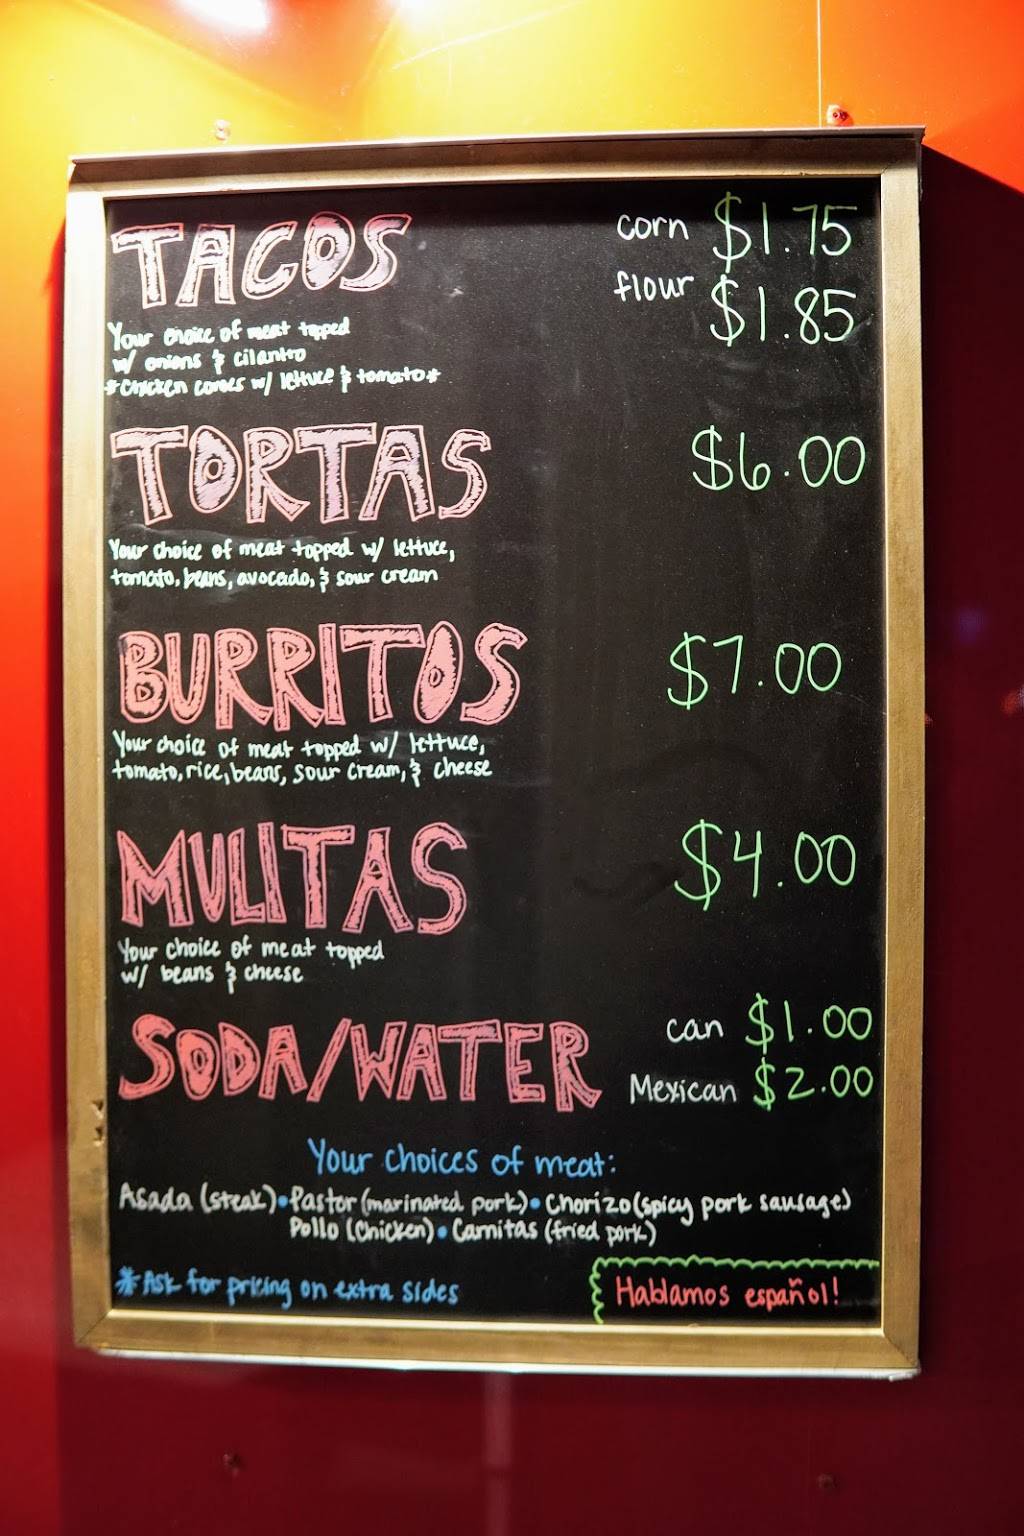 TACOS corn $1.75
flour $1.85
Your choice of meat topped
w/ onions & cilantro
*Chicken comes w/ lettuce & tomato*
TORTAS $6.00
Your choice of meat topped w/ lettuce,
tomato, beans, avocado, & sour cream
BURRITOS $7.00
Your choice of meat topped w/ lettuce,
tomato, rice, beans, sour cream, & cheese
MULITAS $4.00
Your choice of meat topped
w/ beans & cheese
SODA/WATER can $1.00
Mexican $2.00
Your choices of meat:
Asada (steak) • Pastor (marinated pork) • Chorizo (spicy pork sausage)
Pollo (Chicken) • Carnitas (fried pork)
*Ask for pricing on extra sides
Hablamos español!